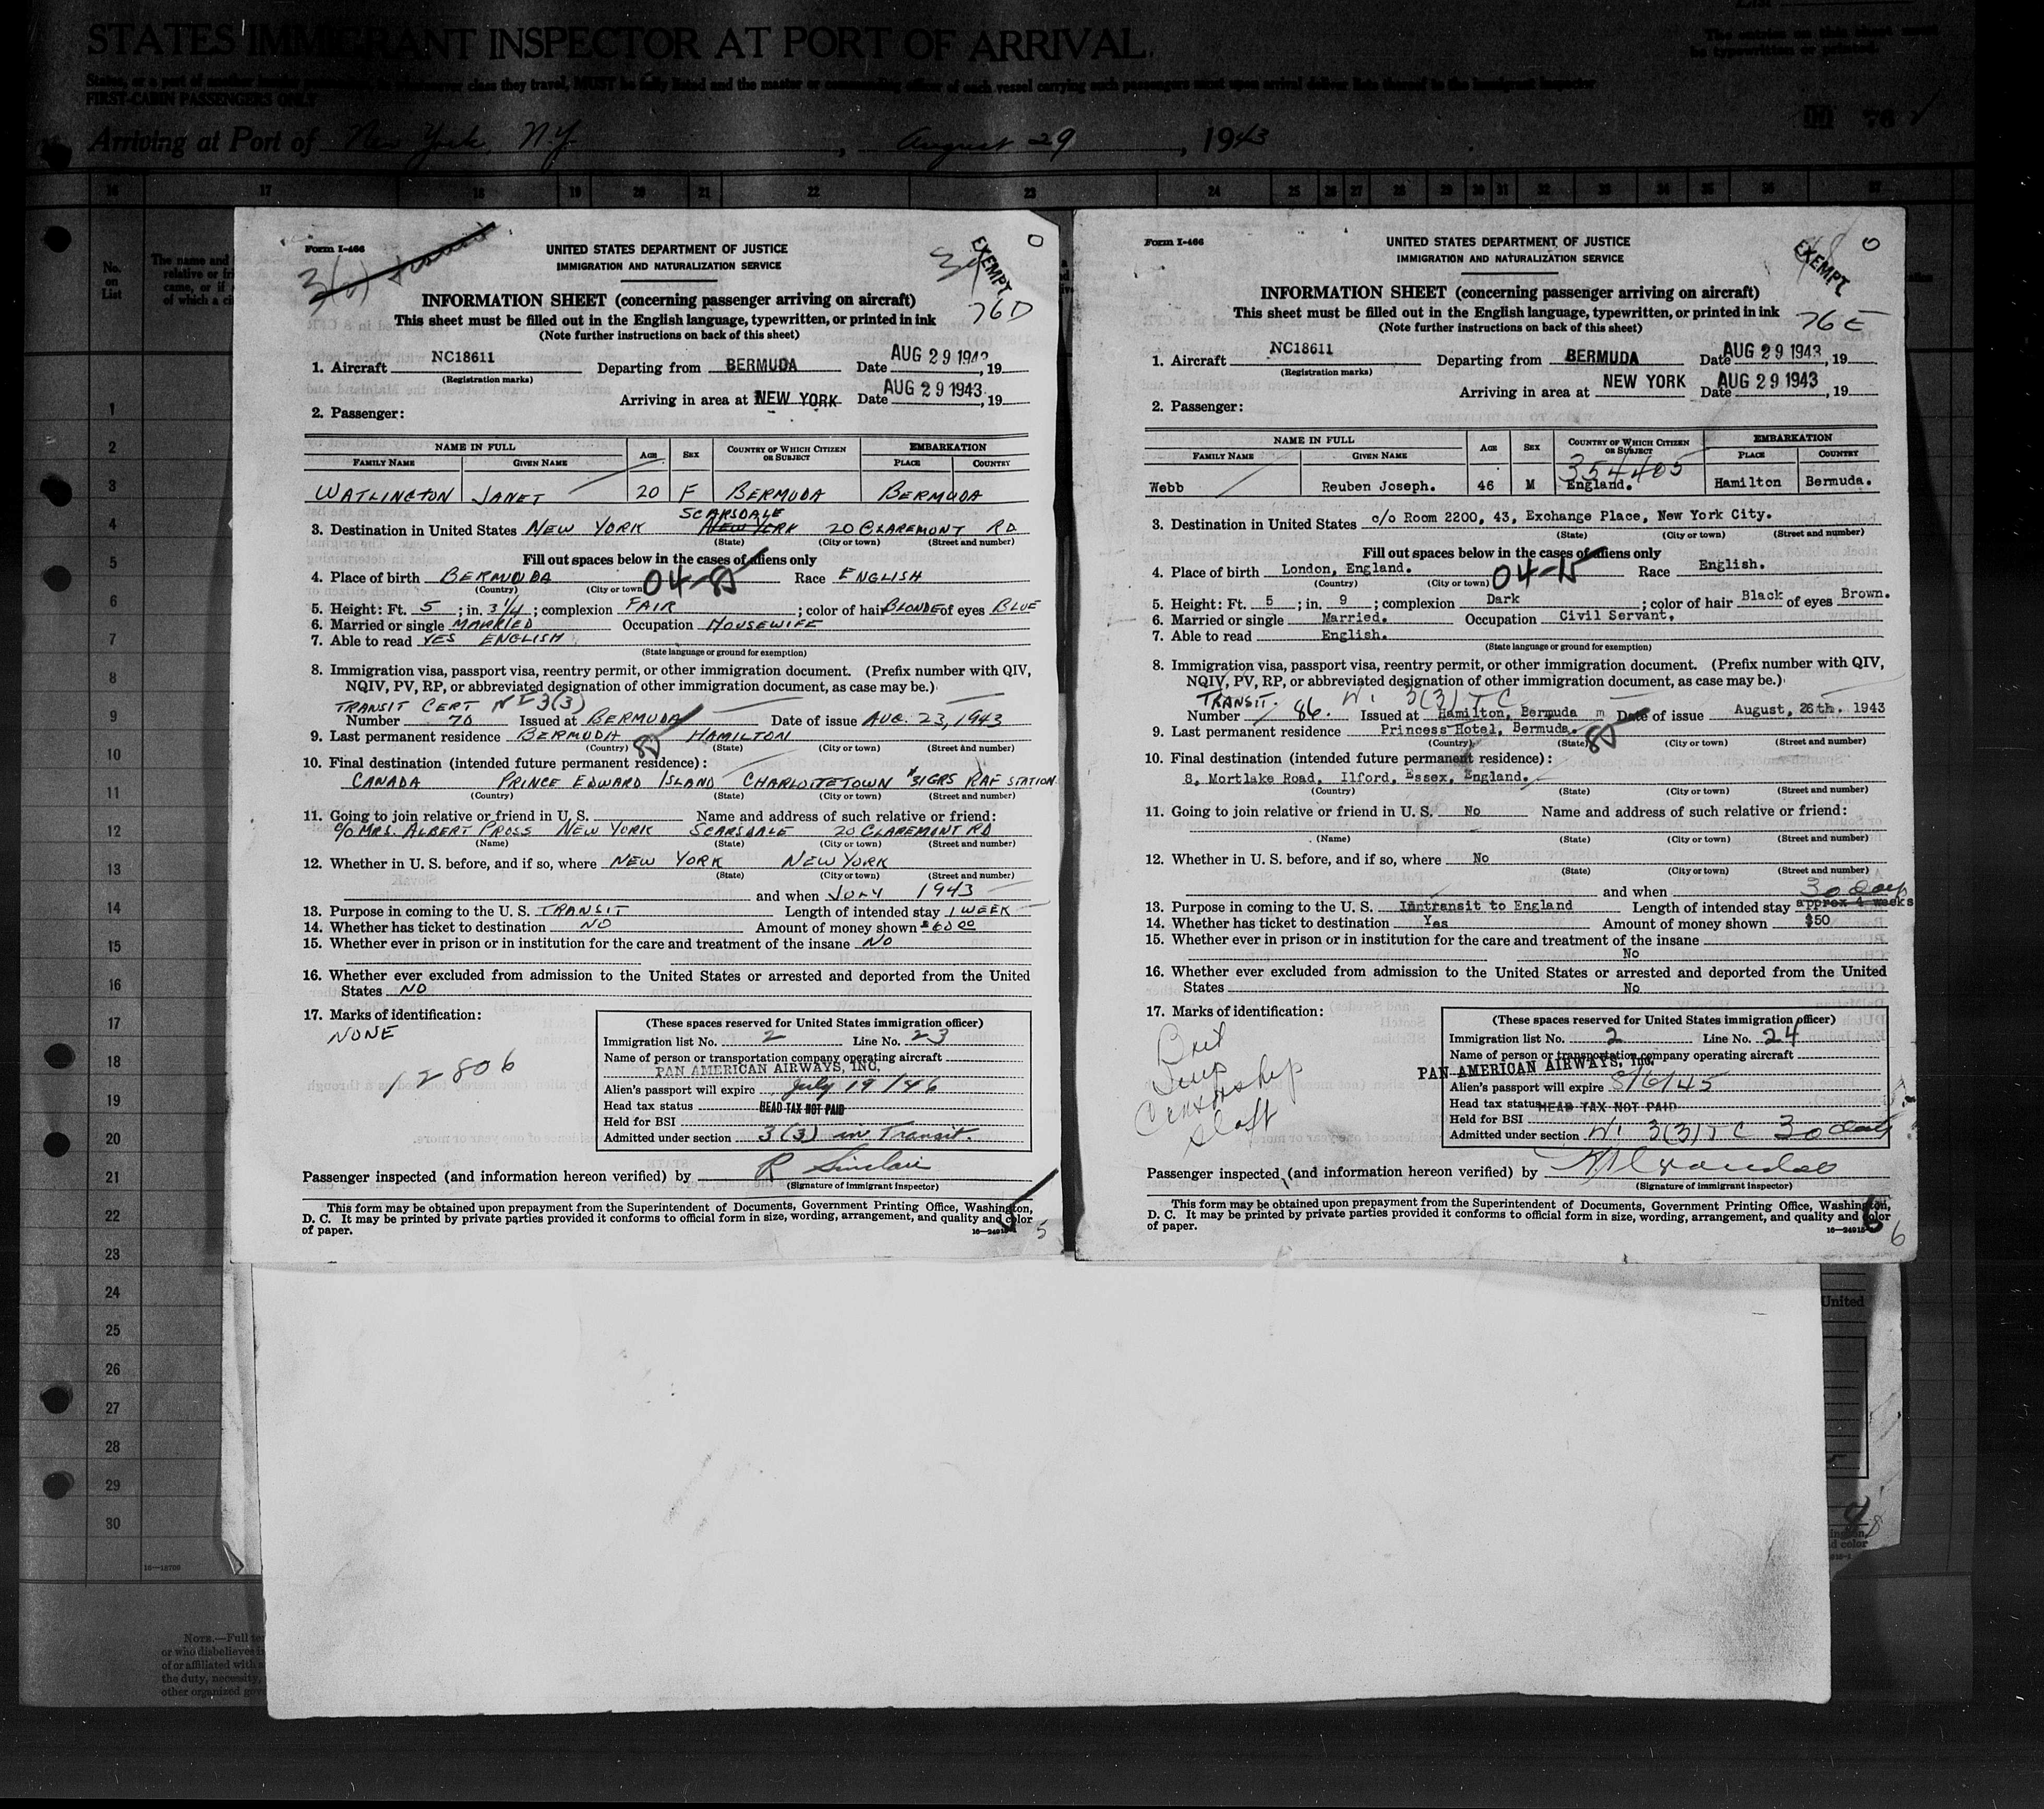 STATES IMMIGRANT INSPECTOR AT PORT OF ARRIVAL
FIRST-CABIN PASSENGERS ONLY
Arriving at Port of New York, N.Y., August 29, 1943
76
16 17 18 19 20 21 22 23 24 25 26 27 28 29 30 31 32 33 34 35 36 37
No. on List
1
2
3
4
5
6
7
8
9
10
11
12
13
14
15
16
17
18
19
20
21
22
23
24
25
26
27
28
29
30
Form I-466
UNITED STATES DEPARTMENT OF JUSTICE
IMMIGRATION AND NATURALIZATION SERVICE
EXEMPT
76D
INFORMATION SHEET (concerning passenger arriving on aircraft)
This sheet must be filled out in the English language, typewritten, or printed in ink
(Note further instructions on back of this sheet)
1. Aircraft NC18611 Departing from BERMUDA Date AUG 29 1943, 19
(Registration marks)
Arriving in area at NEW YORK Date AUG 29 1943, 19
2. Passenger:
NAME IN FULL AGE SEX COUNTRY OF WHICH CITIZEN OR SUBJECT EMBARKATION
FAMILY NAME GIVEN NAME PLACE COUNTRY
WATLINGTON JANET 20 F BERMUDA BERMUDA
SCARSDALE
3. Destination in United States NEW YORK NEW YORK 20 CLAREMONT RD
(State) (City or town) (Street and number)
Fill out spaces below in the cases of aliens only
4. Place of birth BERMUDA 04-85 Race ENGLISH
(Country) (City or town)
5. Height: Ft. 5; in. 3 1/4; complexion FAIR; color of hair BLONDE of eyes BLUE
6. Married or single MARRIED Occupation HOUSEWIFE
7. Able to read YES ENGLISH
(State language or ground for exemption)
8. Immigration visa, passport visa, reentry permit, or other immigration document. (Prefix number with QIV,
NQIV, PV, RP, or abbreviated designation of other immigration document, as case may be.)
TRANSIT CERT NI 3(3)
Number 70 Issued at BERMUDA Date of issue AUG. 23, 1943
9. Last permanent residence BERMUDA HAMILTON
(Country) 85 (State) (City or town) (Street and number)
10. Final destination (intended future permanent residence):
CANADA PRINCE EDWARD ISLAND CHARLOTTETOWN #31GRS RAF STATION
(Country) (State) (City or town) (Street and number)
11. Going to join relative or friend in U. S. Name and address of such relative or friend:
c/o MRS. ALBERT PROSS NEW YORK SCARSDALE 20 CLAREMONT RD
(Name) (State) (City or town) (Street and number)
12. Whether in U. S. before, and if so, where NEW YORK NEW YORK
(State) (City or town) (Street and number)
and when JULY 1943
13. Purpose in coming to the U. S. TRANSIT Length of intended stay 1 WEEK
14. Whether has ticket to destination NO Amount of money shown $60.00
15. Whether ever in prison or in institution for the care and treatment of the insane NO
16. Whether ever excluded from admission to the United States or arrested and deported from the United
States NO
17. Marks of identification:
NONE
12806
(These spaces reserved for United States immigration officer)
Immigration list No. 2 Line No. 23
Name of person or transportation company operating aircraft
PAN AMERICAN AIRWAYS, INC.
Alien's passport will expire July 19/46
Head tax status HEAD TAX NOT PAID
Held for BSI
Admitted under section 3(3) in Transit.
Passenger inspected (and information hereon verified) by R Sinclair
(Signature of immigrant inspector)
This form may be obtained upon prepayment from the Superintendent of Documents, Government Printing Office, Washington,
D. C. It may be printed by private parties provided it conforms to official form in size, wording, arrangement, and quality and color
of paper.
5
Form I-466
UNITED STATES DEPARTMENT OF JUSTICE
IMMIGRATION AND NATURALIZATION SERVICE
EXEMPT
76E
INFORMATION SHEET (concerning passenger arriving on aircraft)
This sheet must be filled out in the English language, typewritten, or printed in ink
(Note further instructions on back of this sheet)
1. Aircraft NC18611 Departing from BERMUDA Date AUG 29 1943, 19
(Registration marks)
Arriving in area at NEW YORK Date AUG 29 1943, 19
2. Passenger:
NAME IN FULL AGE SEX COUNTRY OF WHICH CITIZEN OR SUBJECT EMBARKATION
FAMILY NAME GIVEN NAME PLACE COUNTRY
354405
Webb Reuben Joseph. 46 M England. Hamilton Bermuda.
3. Destination in United States c/o Room 2200, 43, Exchange Place, New York City.
(State) (City or town) (Street and number)
Fill out spaces below in the cases of aliens only
4. Place of birth London, England. Race English.
(Country) (City or town)
5. Height: Ft. 5; in. 9; complexion Dark; color of hair Black of eyes Brown.
6. Married or single Married. Occupation Civil Servant.
7. Able to read English.
(State language or ground for exemption)
8. Immigration visa, passport visa, reentry permit, or other immigration document. (Prefix number with QIV,
NQIV, PV, RP, or abbreviated designation of other immigration document, as case may be.)
TRANSIT. 3(3) TC
Number 86. Issued at Hamilton, Bermuda Date of issue August, 26th. 1943
9. Last permanent residence Princess Hotel, Bermuda.
(Country) (State) 85 (City or town) (Street and number)
10. Final destination (intended future permanent residence):
8, Mortlake Road, Ilford, Essex, England.
(Country) (State) (City or town) (Street and number)
11. Going to join relative or friend in U. S. No Name and address of such relative or friend:
(Name) (State) (City or town) (Street and number)
12. Whether in U. S. before, and if so, where No
(State) (City or town) (Street and number)
and when
30 days
13. Purpose in coming to the U. S. Intransit to England Length of intended stay approx 4 weeks
14. Whether has ticket to destination Yes Amount of money shown $50
15. Whether ever in prison or in institution for the care and treatment of the insane
No
16. Whether ever excluded from admission to the United States or arrested and deported from the United
States No
17. Marks of identification:
Brit
Censorship
Staff
(These spaces reserved for United States immigration officer)
Immigration list No. 2 Line No. 24
Name of person or transportation company operating aircraft
PAN AMERICAN AIRWAYS, INC.
Alien's passport will expire 8/6/45
Head tax status HEAD TAX NOT PAID
Held for BSI
Admitted under section 3(3) TC 30 days
Passenger inspected (and information hereon verified) by
(Signature of immigrant inspector)
This form may be obtained upon prepayment from the Superintendent of Documents, Government Printing Office, Washington,
D. C. It may be printed by private parties provided it conforms to official form in size, wording, arrangement, and quality and color
of paper.
6
United